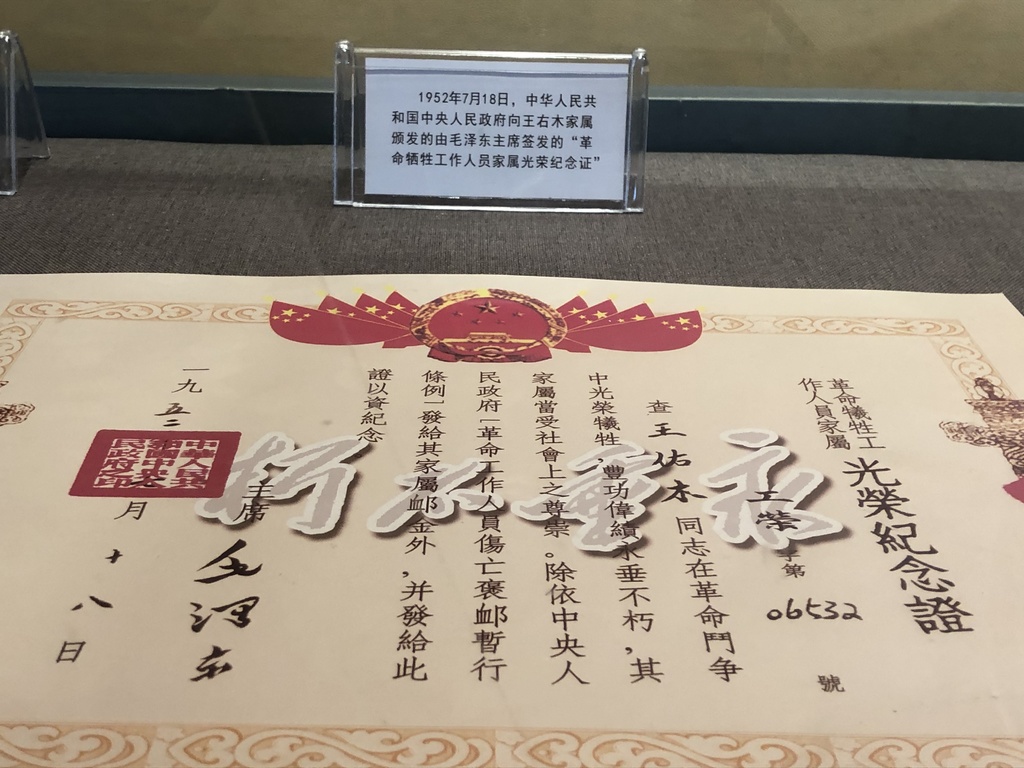 1952年7月18日，中华人民共
和国中央人民政府向王右木家属
颁发的由毛泽东主席签发的“革
命牺牲工作人员家属光荣纪念证”
革命犧牲工
作人員家屬
光榮紀念證
字第06532號
查王佑木同志在革命鬥爭
中光榮犧牲，豐功偉績永垂不朽，其
家屬當受社會上之尊崇。除依中央人
民政府「革命工作人員傷亡褒卹暫行
條例」發給其家屬卹金外，并發給此
證以資紀念
主席 毛澤东
一九五二 月十八日
永垂不朽
中華人民共和國中央人民政府之印